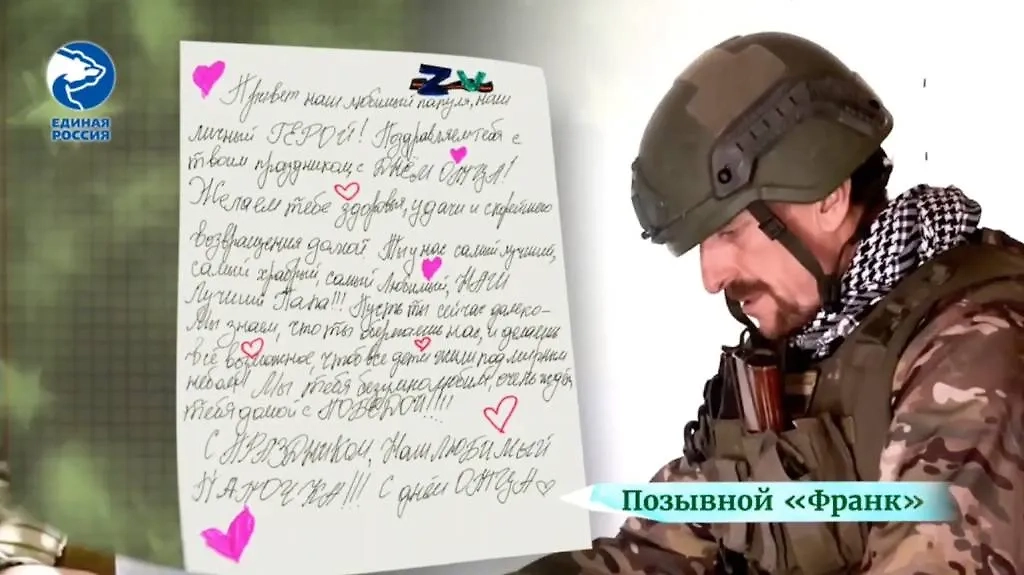 ЕДИНАЯ
РОССИЯ
ZV
Привет наш любимый папуля, наш
личный ГЕРОЙ! Поздравляем тебя с
твоим праздником, с ДНЁМ ОТЦА!
Желаем тебе здоровья, удачи и скорейшего
возвращения домой. Ты у нас самый лучший,
самый храбрый, самый любимый, НАШ
Лучший Папа!!! Пусть ты сейчас далеко-
Мы знаем, что ты оберегаешь нас, и делаешь
всё возможное, чтоб все дети жили под мирным
небом! Мы тебя безумно любим, очень ждём
тебя домой с ПОБЕДОЙ!!!!
С ПРАЗДНИКОМ, НАШ ЛЮБИМЫЙ
ПАПОЧКА!!! С днём ОТЦА
Позывной «Франк»